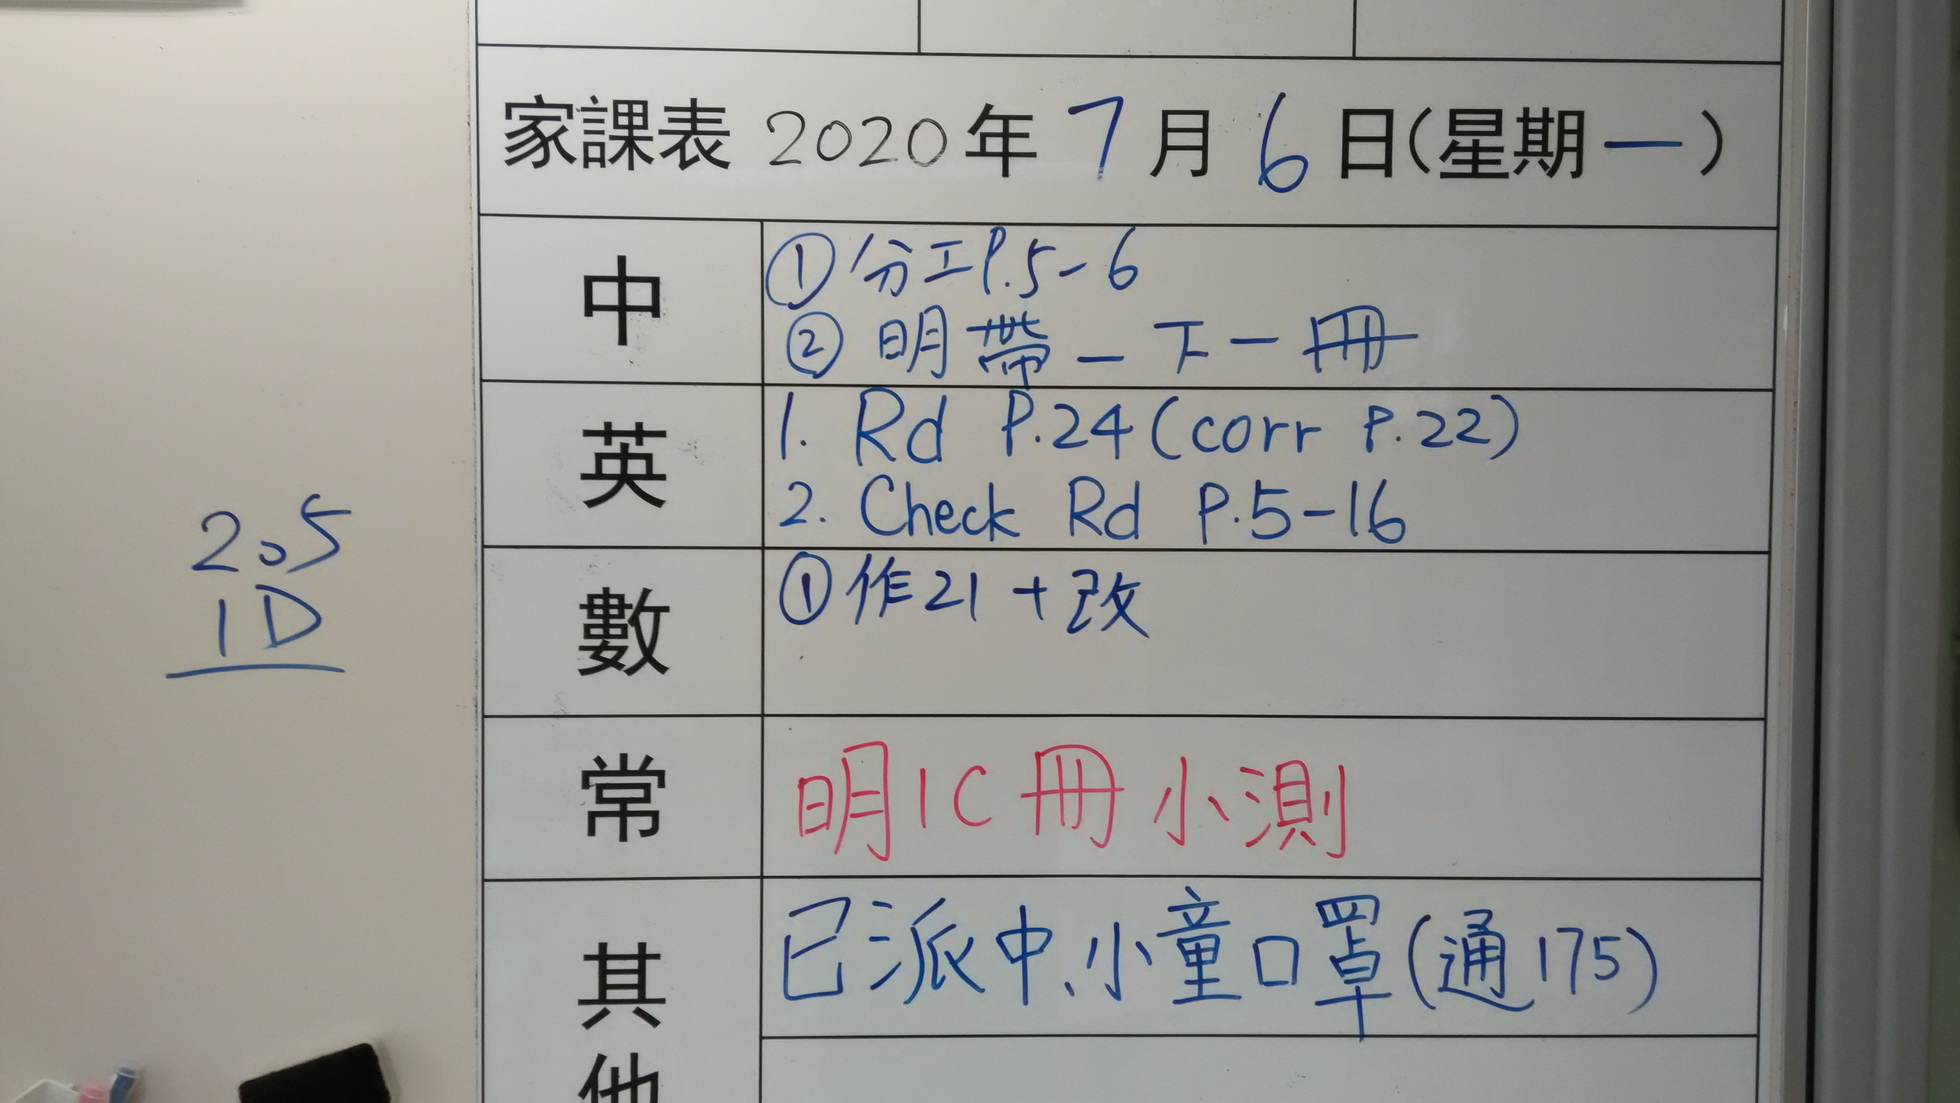 家課表 2020年7月6日(星期一)
中
①分工P.5-6
②明帶一下一冊
英
1. Rd P.24(corr P.22)
2. Check Rd P.5-16
數
①作21+改
常
明1C冊小測
其他
已派中、小童口罩(通175)
2.5
1D